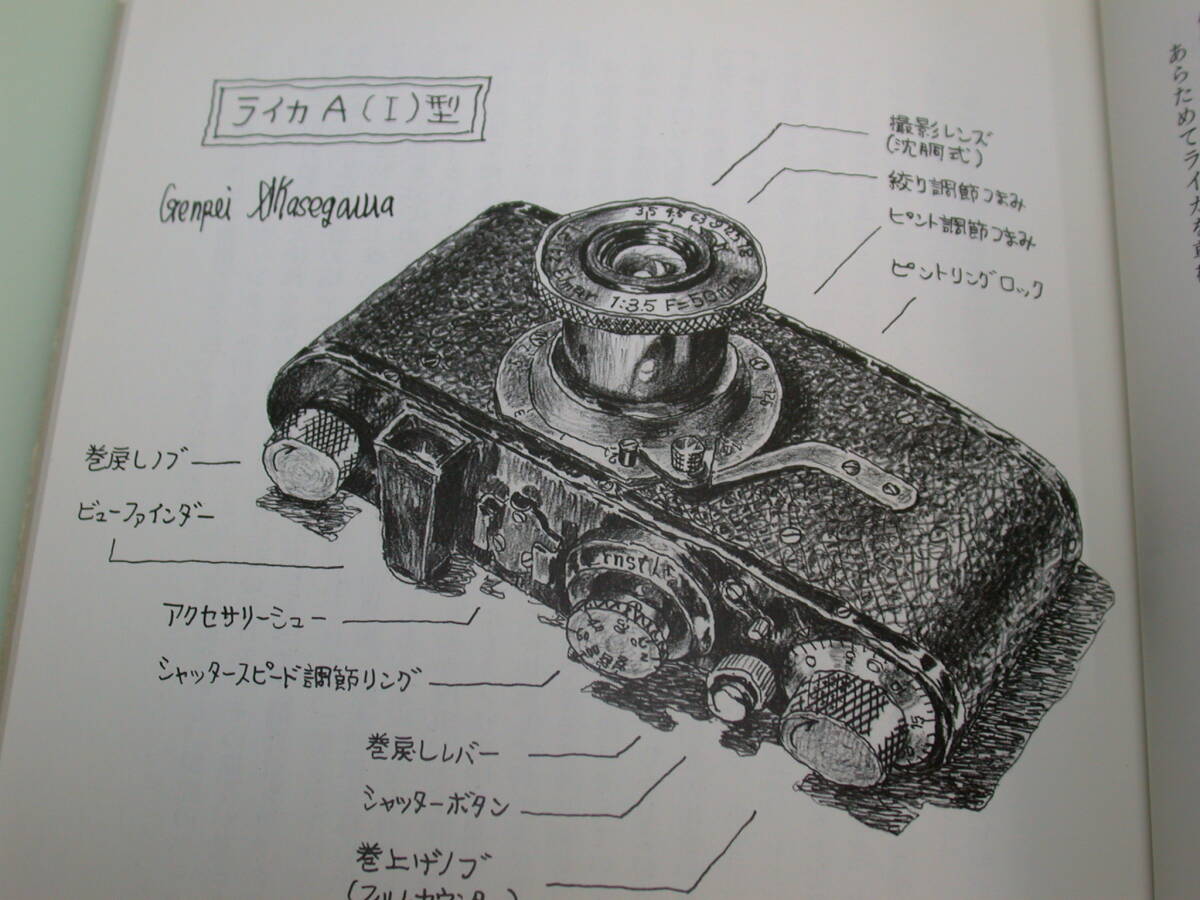 ライカA(I)型
Genpei AKasegawa
撮影レンズ
(沈胴式)
絞り調節つまみ
ピント調節つまみ
ピントリングロック
1:3.5 F=50mm
巻戻しノブ
ビューファインダー
アクセサリーシュー
シャッタースピード調節リング
巻戻しレバー
シャッターボタン
巻上げノブ
(フィルムカウンター)
あらためてライカを